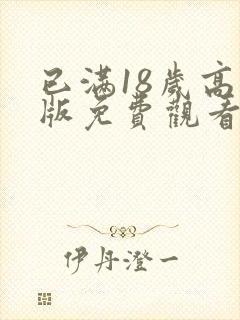 已滿18歲高
版免費觀看
伊丹澄一